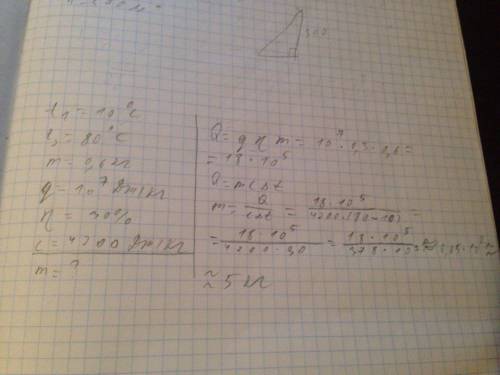 300
t₁ = 10°C
t₂ = 80°C
m = 0,6 кг
q = 10⁷ Дж/кг
η = 30%
c = 4200 Дж/кг
m = ?
Q = q η m = 10⁷ · 0,3 · 0,6 =
= 18 · 10⁵
Q = m c Δt
m = Q / cΔt = 18 · 10⁵ / 4200 · (80 - 10) =
= 18 · 10⁵ / 4200 · 90 = 18 · 10⁵ / 378 · 10³ ≈
≈ 5 кг